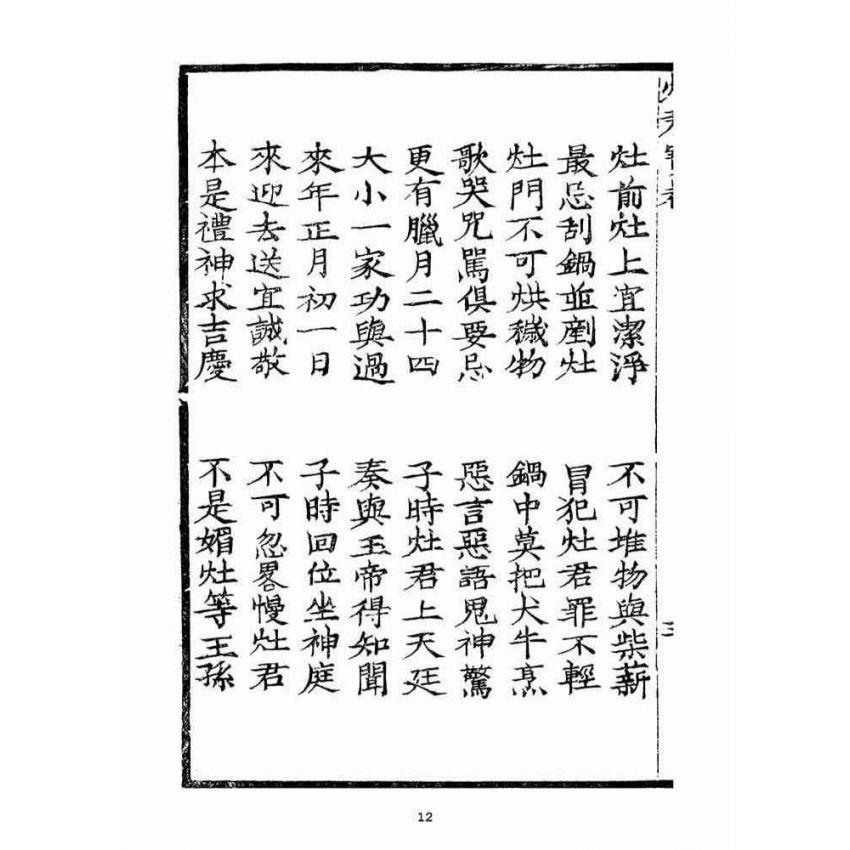 灶前灶上宜潔淨　不可堆物與柴薪
最忌刮鍋並剷灶　冒犯灶君罪不輕
灶門不可烘穢物　鍋中莫把犬牛烹
歌哭咒罵俱要忌　惡言惡語鬼神驚
更有臘月二十四　子時灶君上天廷
大小一家功與過　奏與玉帝得知聞
來年正月初一日　子時回位坐神庭
來迎去送宜誠敬　不可忽畧慢灶君
本是禮神求吉慶　不是媚灶等王孫
12